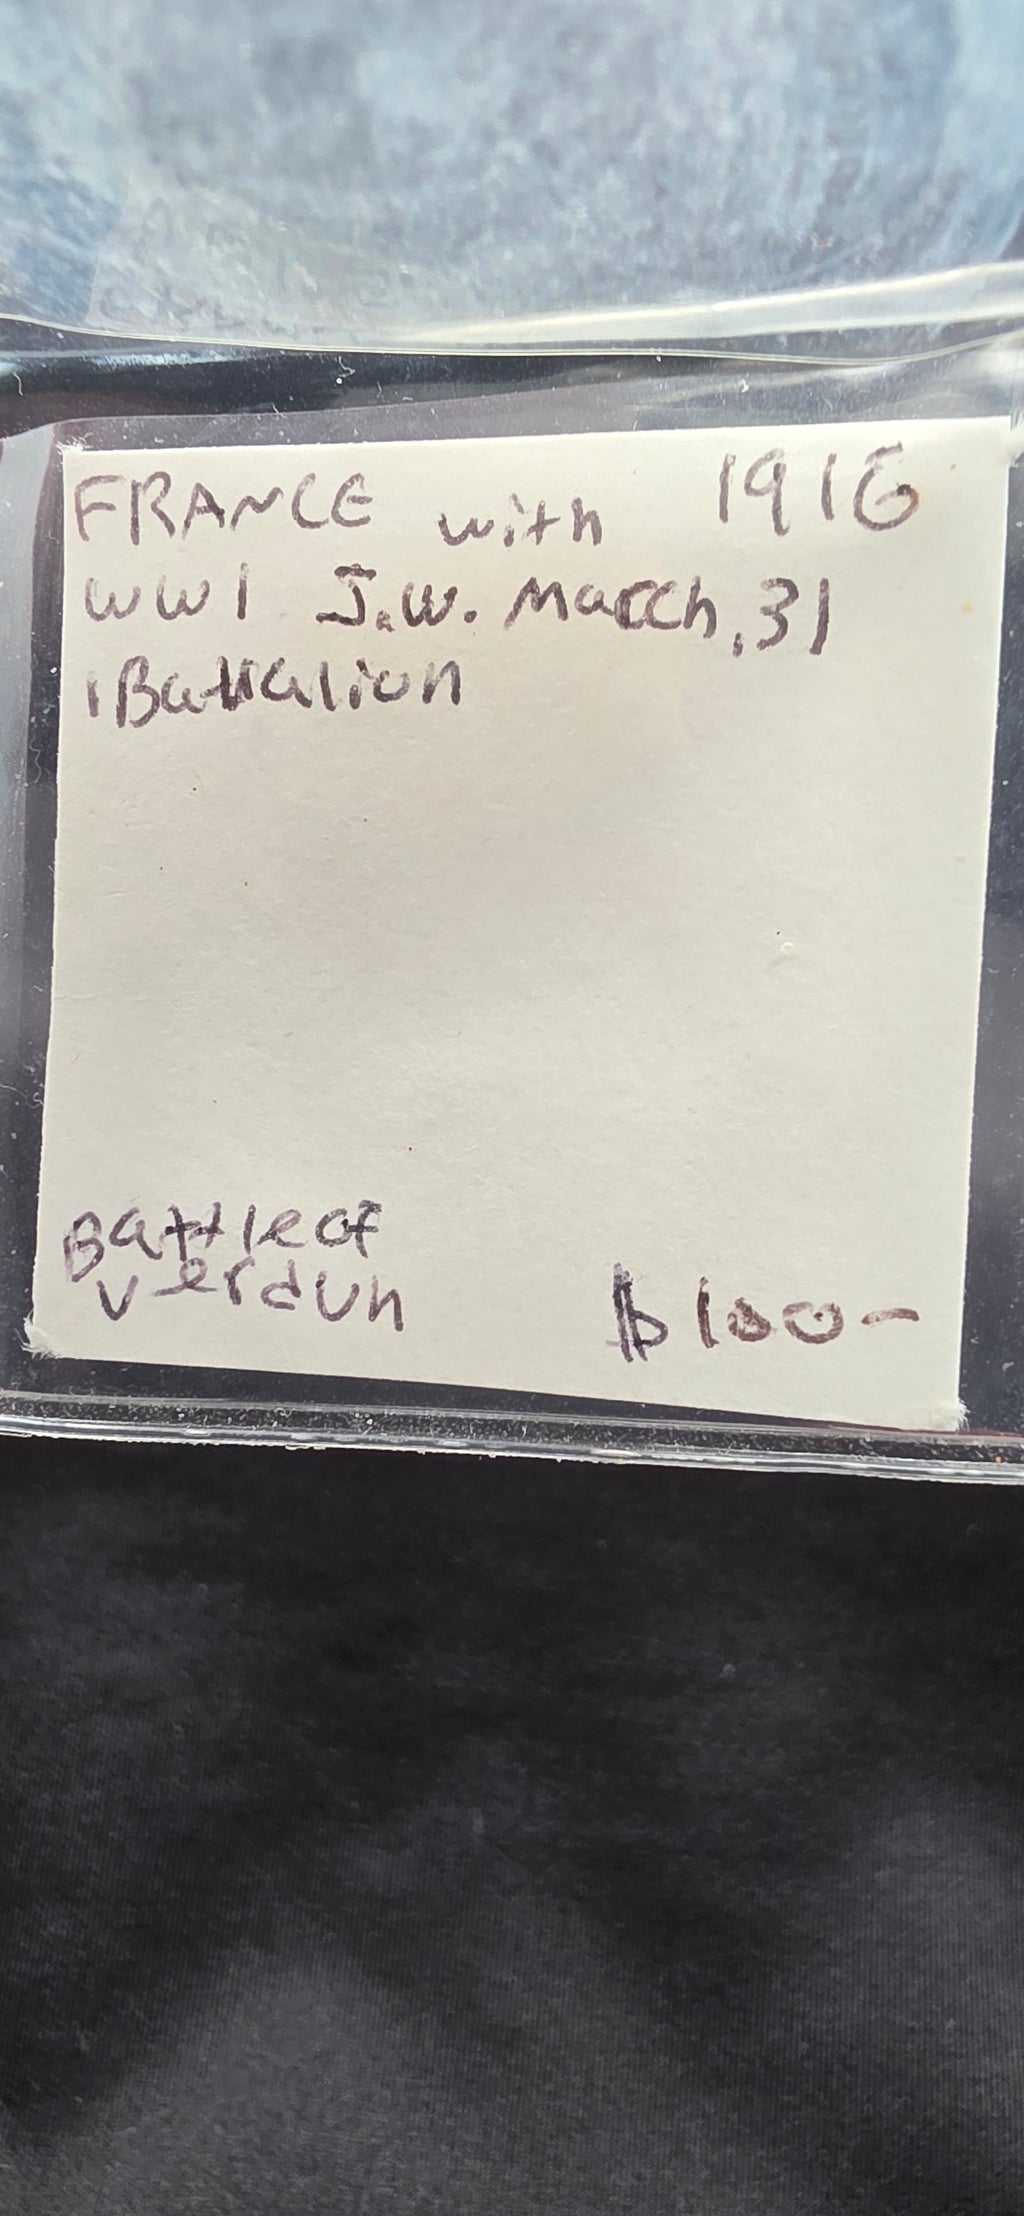 FRANCE with 1916
WW1 J.W. March, 31
1 Battalion
Battle of
Verdun
$100-